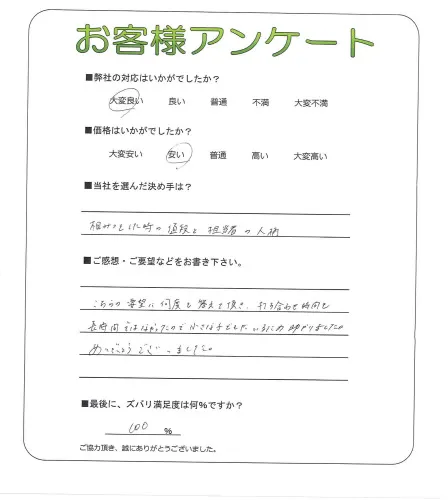 お客様アンケート
■弊社の対応はいかがでしたか?
大変良い 良い 普通 不満 大変不満
■価格はいかがでしたか?
大変安い 安い 普通 高い 大変高い
■当社を選んだ決め手は?
相みつをした時の値段と担当者の人柄
■ご感想・ご要望などをお書き下さい。
こちらの要望に何度も答えて頂き、打ち合わせ時間も
長時間 小さな子も 助かりました。
ありがとうございました。
■最後に、ズバリ満足度は何%ですか?
100 %
ご協力頂き、誠にありがとうございました。